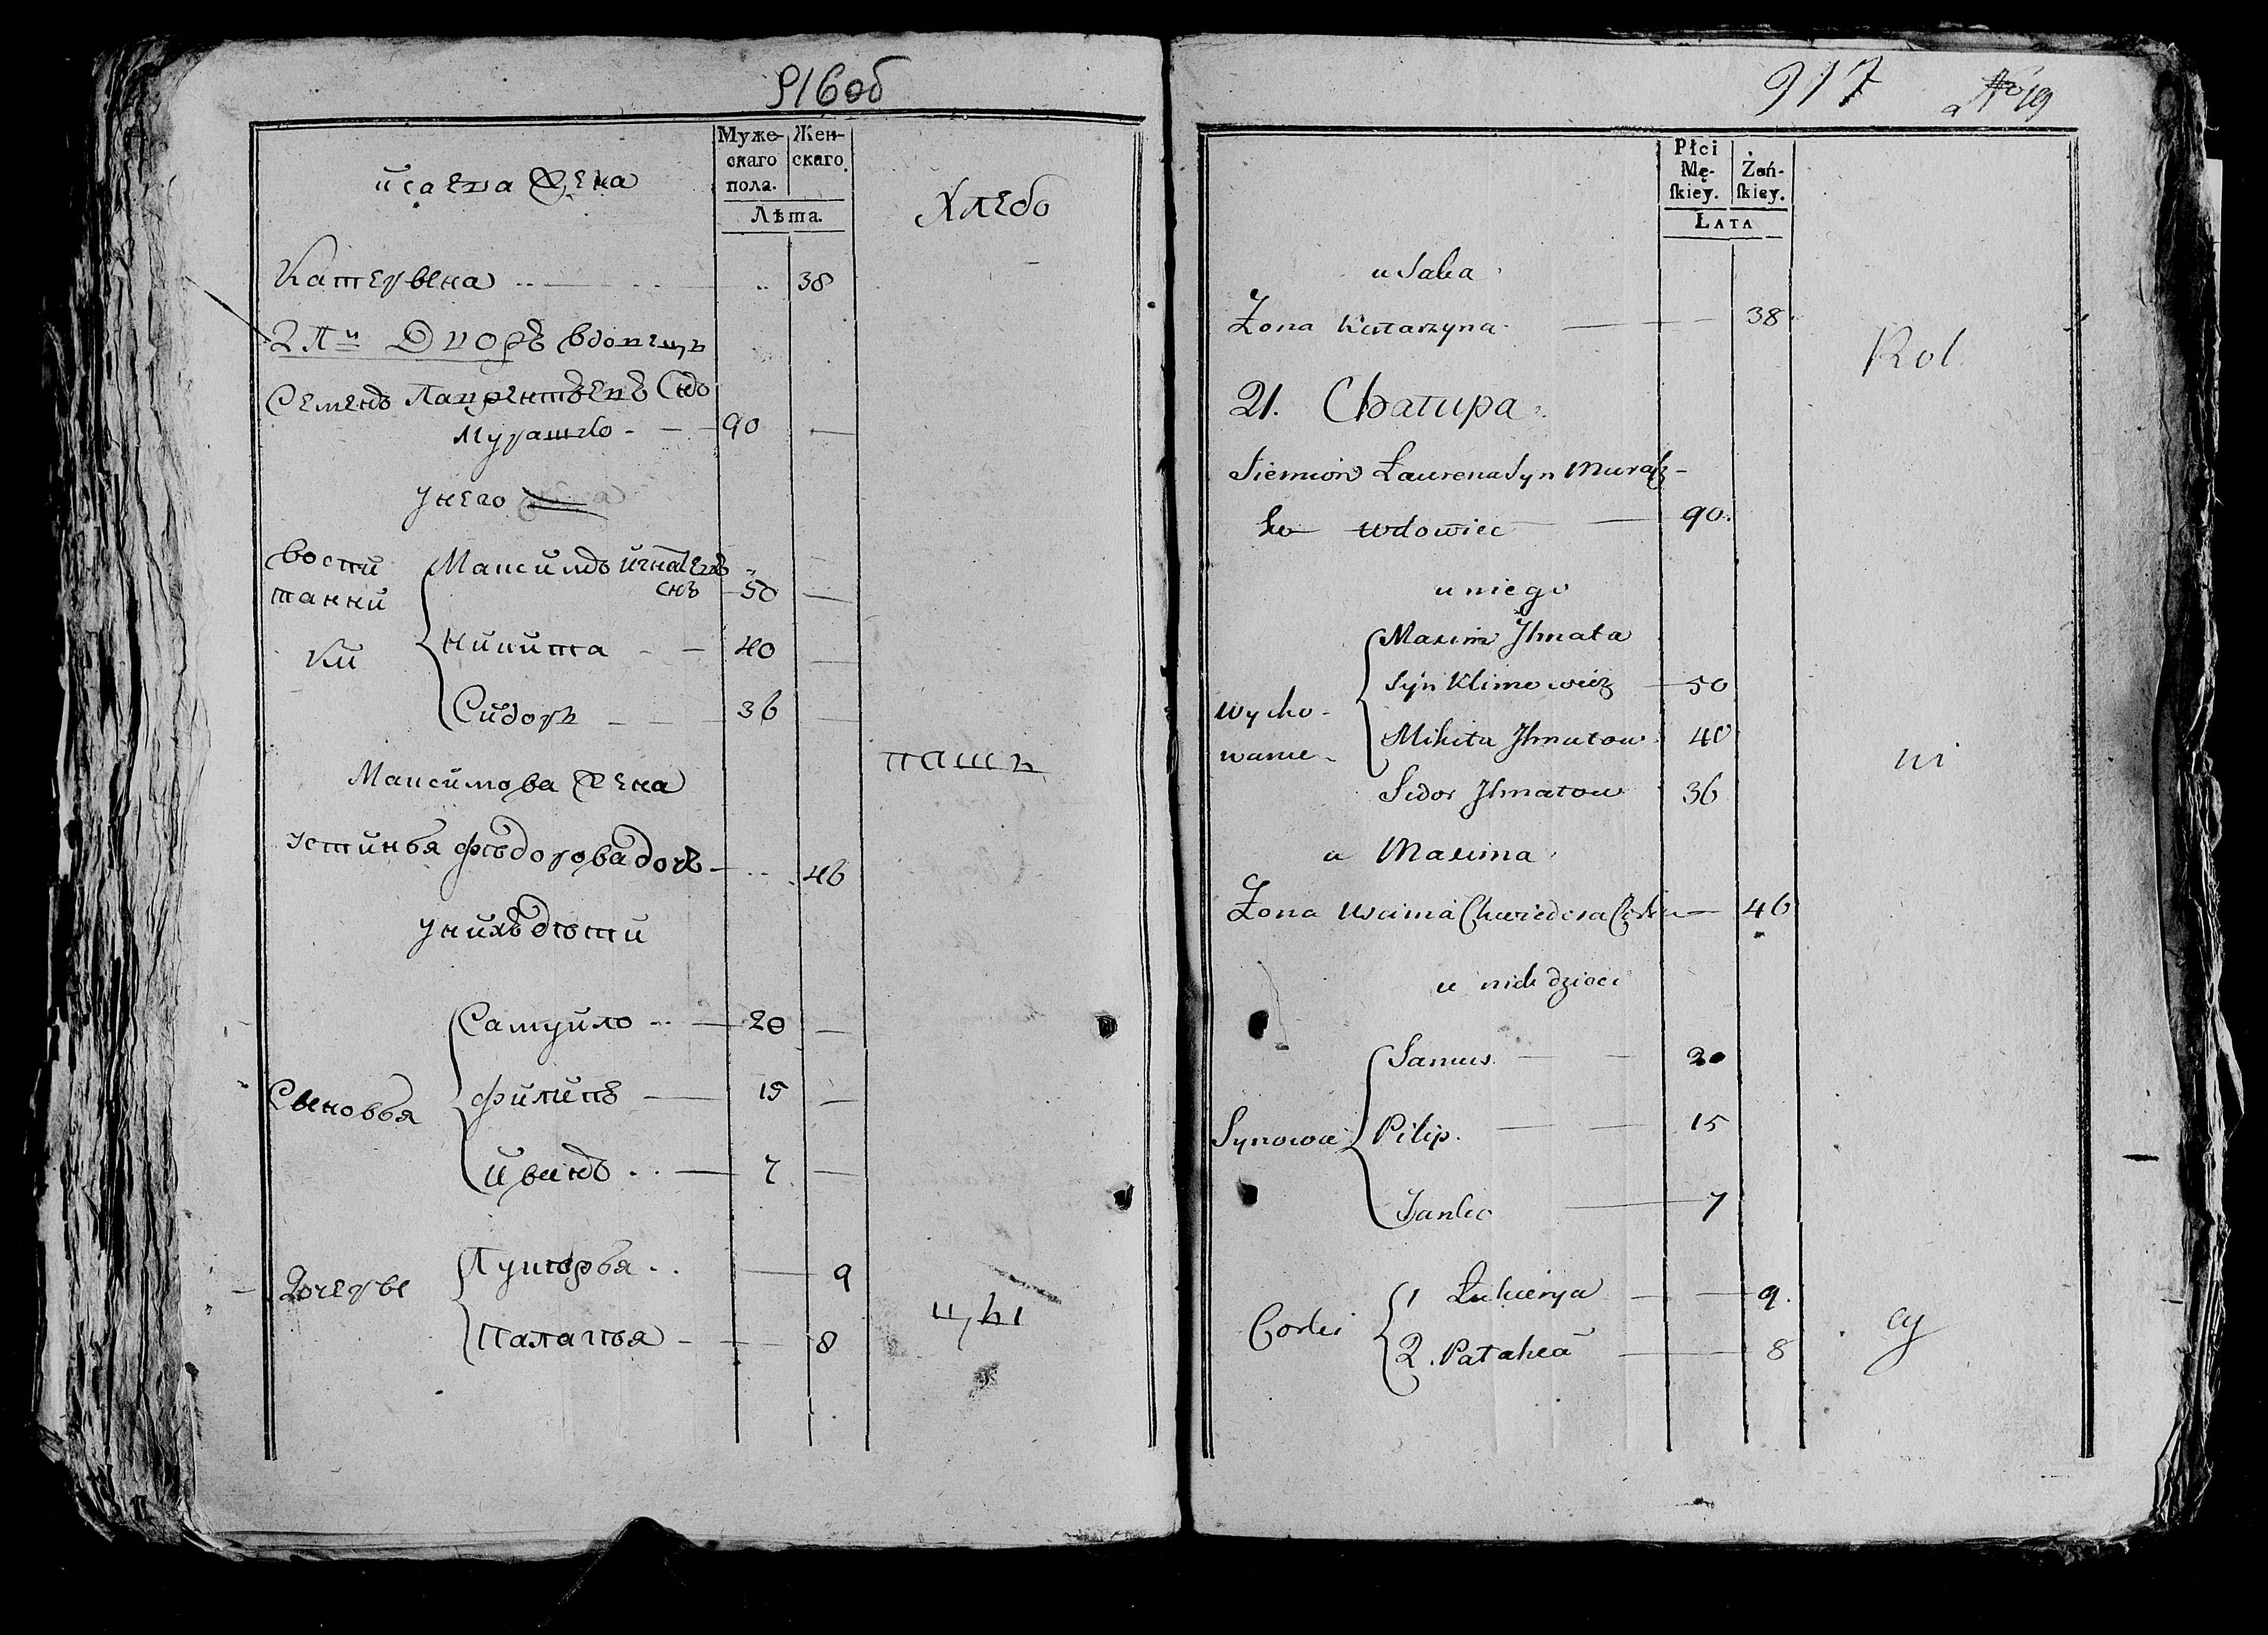 916об
Муже-
скаго
пола.
Жен-
скаго
Лѣта.
исаева жена
Хлебо
Катерѣна 38
Дворъ вдовецъ
Семенъ Лаврентьевъ Снъ
Мурашко 90
унего
воспи
танни
ки
Максимъ игнатьевъ
снъ 50
Никита 40
Сидоръ 36
Максимова жена
паш
устинья фѣодорова дочъ 46
унихъ дѣти
Сыновья
Самуйло 20
филипъ 15
Иванъ 7
Дочеры
Лукерья 9
Палагея 8
цы
917
No 19
Płci
Mę-
ſkiey.
Żeń-
ſkiey.
LATA
u Saka
Żona Katarzyna 38
Rol
21. Chatupa
Siemion Laurena Syn Murasz-
ko wdowiec 90.
u niego
Wycho-
wanie
Maxim Jhnata
Syn Klimowicz 50
Mikita Jhnatow 40
Sidor Jhnatow 36
ni
u Maxima
Żona Chwiedora Corka 46
u nich dzieci
Synowie
Samus 20
Pilip 15
Janko 7
Corki
1 Łukierya 9.
2. Patahea 8
cy